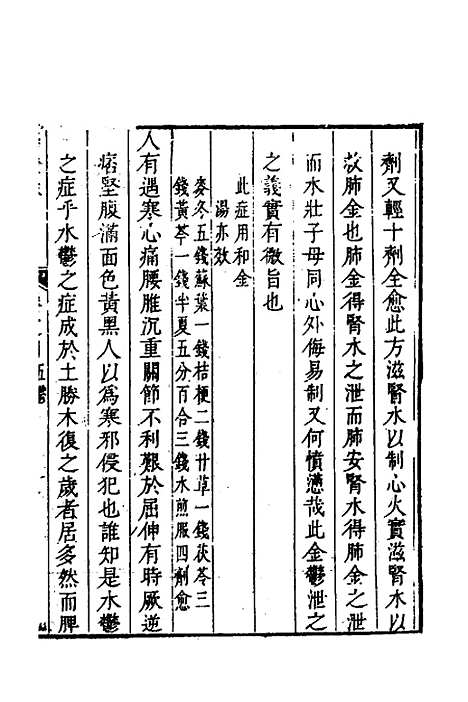 劑又輕十劑全愈此方滋腎水以制心火實滋腎水以
救肺金也肺金得腎水之泄而肺安腎水得肺金之泄
而水壯子母同心外侮易制又何憤懣哉此金鬱泄之
之義實有微旨也
此症用和金
湯亦效
麥冬五錢蘇葉一錢桔梗二錢甘草一錢茯苓三
錢黃芩一錢半夏五分百合三錢水煎服四劑愈
人有遇寒心痛腰脽沉重關節不利艱於屈伸有時厥逆
痞堅腹滿面色黃黑人以爲寒邪侵犯也誰知是水鬱
之症乎水鬱之症成於土勝木復之歲者居多然而脾